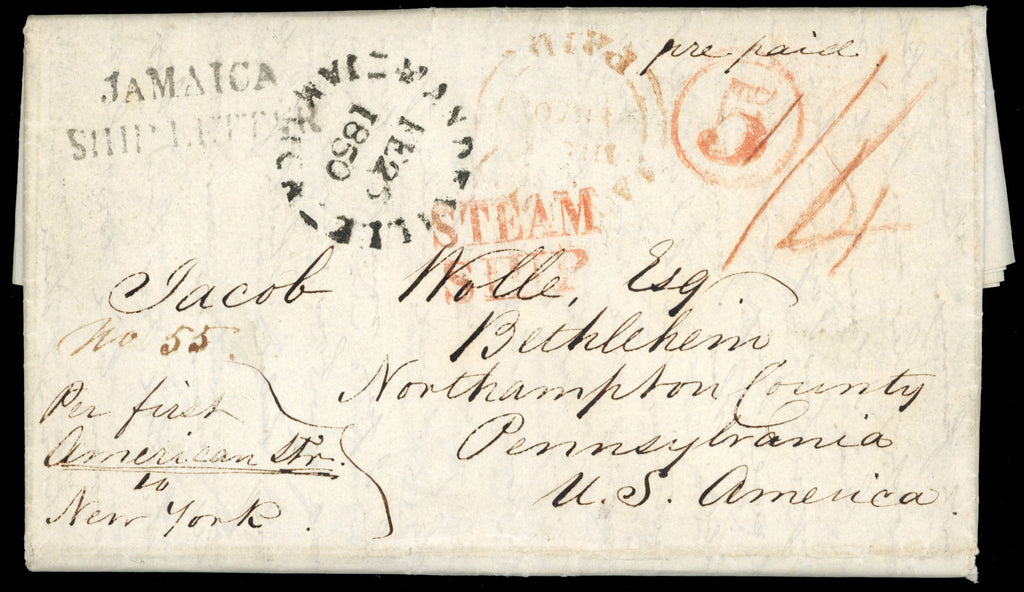 pre paid
JAMAICA
SHIP LETTER
JAMAICA
JE 26
1850
PAID
5
1/4
STEAM
SHIP
Jacob Wolle, Esq.
No 55.
Bethlehem
Per first
Northampton County
American Str.
Pennsylvania
to
New York.
U.S. America.